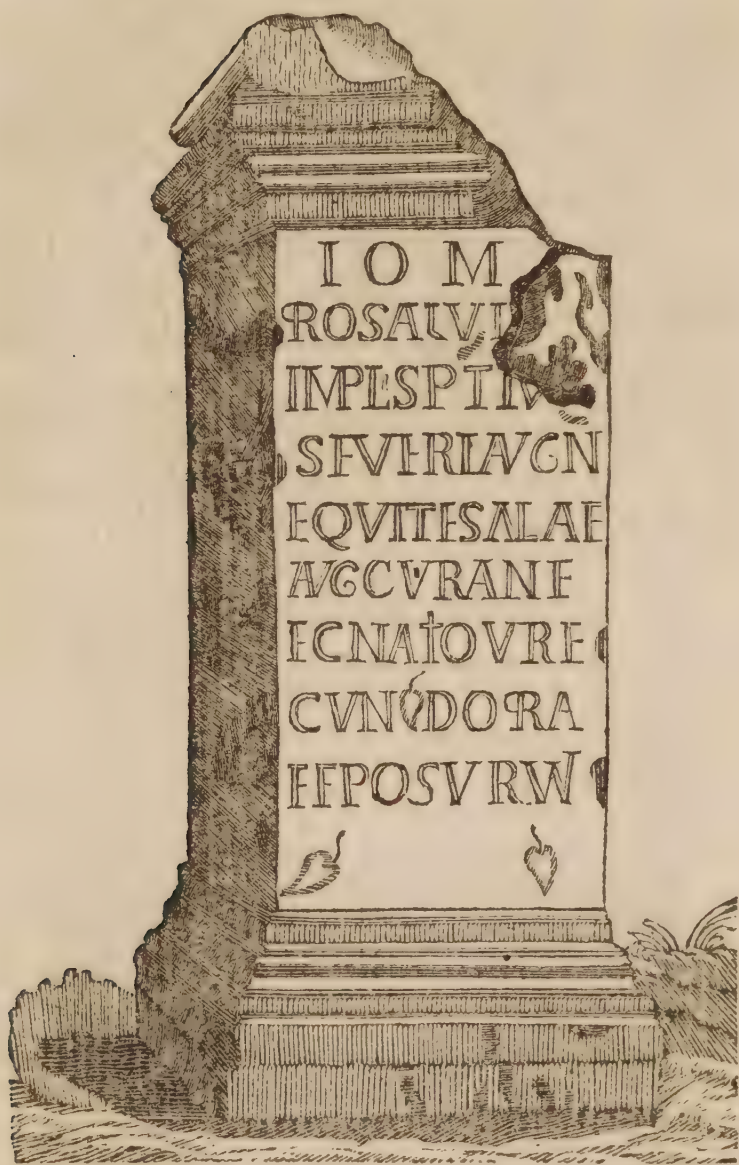 I O M
PROSALVT
IMPLSPTIM
SEVERIAVGN
EQVITESALAE
AVGCVRANE
ECNATOVRE
CVNDOPRA
EFPOSVRVN